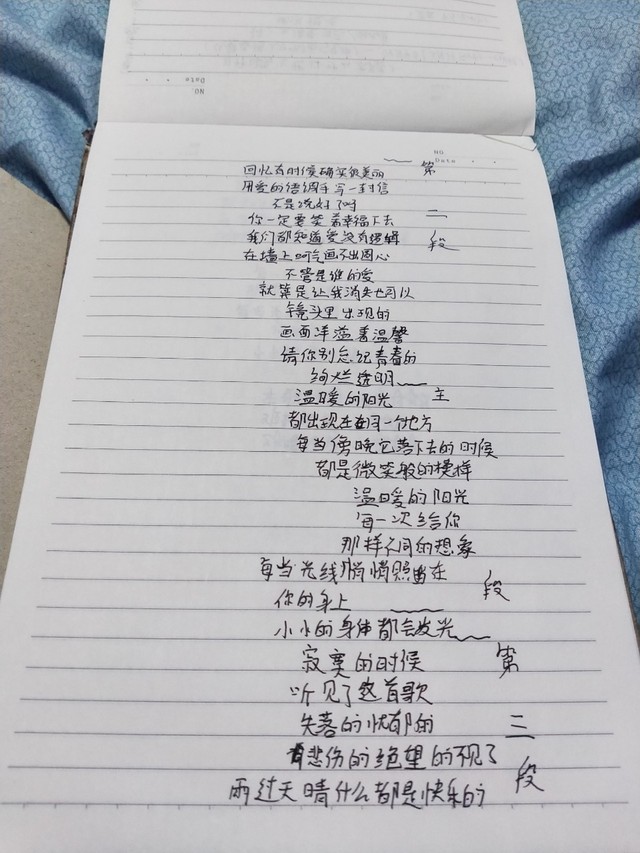 NO.
Date
NO
Date
第
回忆有时候确实很美丽
用爱的语调手写一封信
不是说好了吗
二
你一定要笑着幸福下去
段
我们都知道爱没有逻辑
在墙上呵气画不出圆心
不管是谁的爱
就算是让我消失也可以
镜头里出现的
画面洋溢着温馨
请你别忘记青春的
绚烂透明
主
温暖的阳光
都出现在每一个地方
每当傍晚它落下去的时候
都是微笑般的模样
温暖的阳光
每一次给你
那样不同的想象
每当光线悄悄照在
段
你的身上
小小的身体都会发光
第
寂寞的时候
听见了这首歌
失落的忧郁的
三
悲伤的绝望的不见了
段
雨过天晴什么都是快乐的